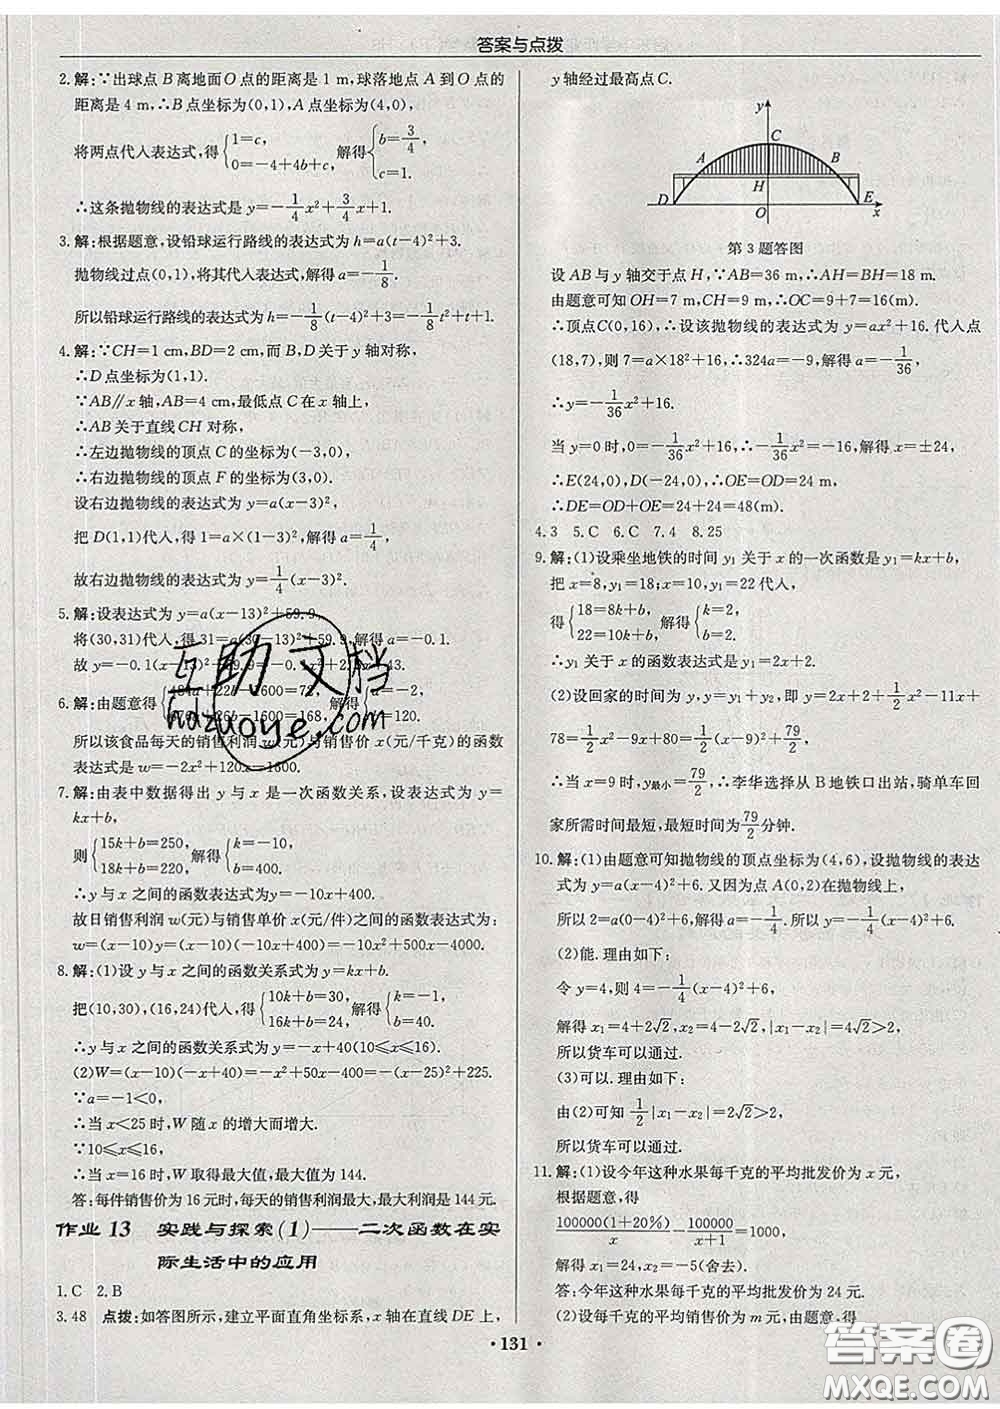 答案与点拨
2.解:∵出球点B离地面O点的距离是1 m,球落地点A到O点的
距离是4 m,∴B点坐标为(0,1),A点坐标为(4,0),
将两点代入表达式,得{1=c, 0=-4+4b+c, 解得{b=3/4, c=1.
∴这条抛物线的表达式是y=-1/4x²+3/4x+1.
3.解:根据题意,设铅球运行路线的表达式为h=a(t-4)²+3.
抛物线过点(0,1),将其代入表达式,解得a=-1/8.
所以铅球运行路线的表达式为h=-1/8(t-4)²+3=-1/8t²+t+1.
4.解:∵CH=1 cm,BD=2 cm,而B,D关于y轴对称,
∴D点坐标为(1,1).
∵AB∥x轴,AB=4 cm,最低点C在x轴上,
∴AB关于直线CH对称,
∴左边抛物线的顶点C的坐标为(-3,0),
∴右边抛物线的顶点F的坐标为(3,0).
设右边抛物线的表达式为y=a(x-3)²,
把D(1,1)代入,得1=a(1-3)²,解得a=1/4,
故右边抛物线的表达式为y=1/4(x-3)².
5.解:设表达式为y=a(x-13)²+59.9,
将(30,31)代入,得31=a(30-13)²+59.9,解得a=-0.1.
故y=-0.1(x-13)²+59.9=-0.1x²+2.6x+43.
6.解:由题意得 -1600=72, 676a+26b-1600=168, 解得{a=-2, b=120.
所以该食品每天的销售利润w(元)与销售价x(元/千克)的函数
表达式是w=-2x²+120x-1600.
7.解:由表中数据得出y与x是一次函数关系,设表达式为y=
kx+b,
则{15k+b=250, 18k+b=220, 解得{k=-10, b=400.
∴y与x之间的函数表达式为y=-10x+400,
故日销售利润w(元)与销售单价x(元/件)之间的函数表达式为:
w=(x-10)y=(x-10)(-10x+400)=-10x²+500x-4000.
8.解:(1)设y与x之间的函数关系式为y=kx+b.
把(10,30),(16,24)代入,得{10k+b=30, 16k+b=24, 解得{k=-1, b=40.
∴y与x之间的函数关系式为y=-x+40(10≤x≤16).
(2)W=(x-10)(-x+40)=-x²+50x-400=-(x-25)²+225.
∵a=-1<0,
∴当x<25时,W随x的增大而增大.
∵10≤x≤16,
∴当x=16时,W取得最大值,最大值为144.
答:每件销售价为16元时,每天的销售利润最大,最大利润是144元.
作业13 实践与探索(1)——二次函数在实
际生活中的应用
1.C 2.B
3.48 点拨:如答图所示,建立平面直角坐标系,x轴在直线DE上,
y轴经过最高点C.
y
C
A
B
H
D
O
E
x
第3题答图
设AB与y轴交于点H,∵AB=36 m,∴AH=BH=18 m.
由题意可知OH=7 m,CH=9 m,∴OC=9+7=16(m).
∴顶点C(0,16),∴设该抛物线的表达式为y=ax²+16.代入点
(18,7),则7=a×18²+16,∴324a=-9,解得a=-1/36,
∴y=-1/36x²+16.
当y=0时,0=-1/36x²+16,∴-1/36x²=-16,解得x=±24,
∴E(24,0),D(-24,0),∴OE=OD=24 m,
∴DE=OD+OE=24+24=48(m).
4.3 5.C 6.C 7.4 8.25
9.解:(1)设乘坐地铁的时间y₁关于x的一次函数是y₁=kx+b,
把x=8,y₁=18;x=10,y₁=22代入,
得{18=8k+b, 22=10k+b, 解得{k=2, b=2.
∴y₁关于x的函数表达式是y₁=2x+2.
(2)设回家的时间为y,y=y₁+y₂,即y=2x+2+1/2x²-11x+
78=1/2x²-9x+80=1/2(x-9)²+79/2,
∴当x=9时,y最小=79/2,∴李华选择从B地铁口出站,骑单车回
家所需时间最短,最短时间为79/2分钟.
10.解:(1)由题意可知抛物线的顶点坐标为(4,6),设抛物线的表达
式为y=a(x-4)²+6.又因为点A(0,2)在抛物线上,
所以2=a(0-4)²+6,解得a=-1/4.所以y=-1/4(x-4)²+6.
(2)能.理由如下:
令y=4,则4=-1/4(x-4)²+6,
解得x₁=4+2√2,x₂=4-2√2,|x₁-x₂|=4√2>2,
所以货车可以通过.
(3)可以.理由如下:
由(2)可知1/2|x₁-x₂|=2√2>2,
所以货车可以通过.
11.解:(1)设今年这种水果每千克的平均批发价为x元,
根据题意,得
100000(1+20%)/x-100000/(x+1)=1000,
解得x₁=24,x₂=-5(舍去).
答:今年这种水果每千克的平均批发价为24元.
(2)设每千克的平均销售价为m元,由题意,得
·131·
互助文档
huzuoye.com
答案圈
MXQE.COM